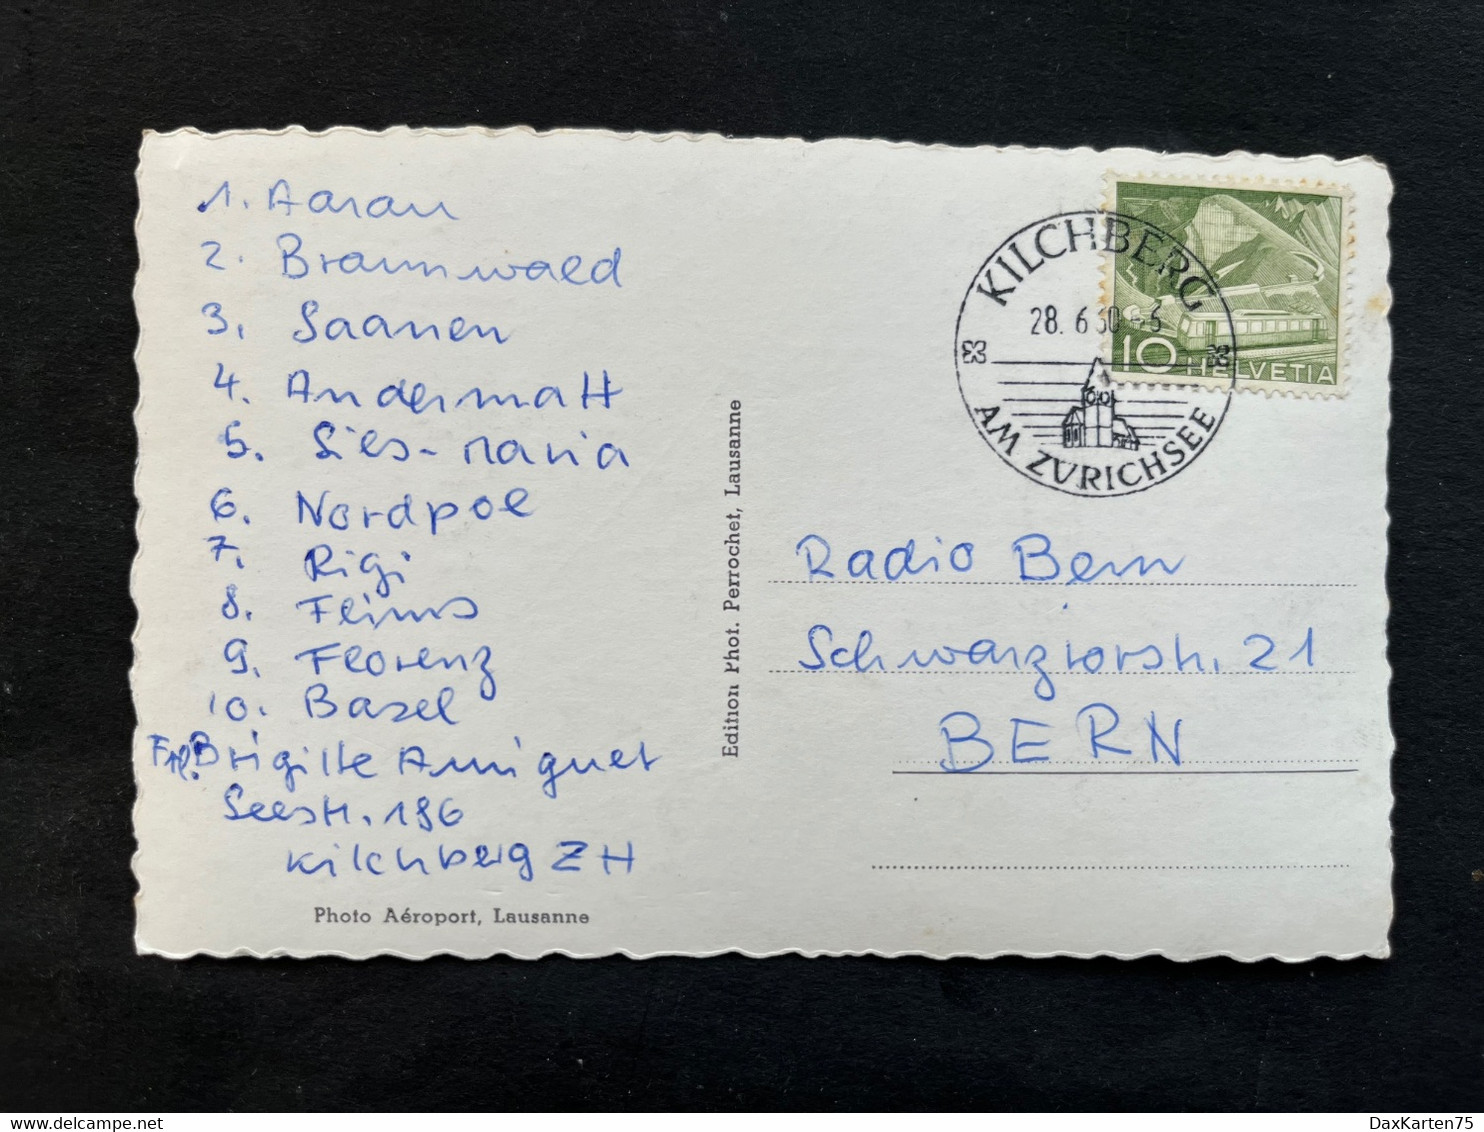 1. Aarau
2. Braunwald
3. Saanen
4. Andermatt
5. Sils-Maria
6. Nordpol
7. Rigi
8. Flims
9. Florenz
10. Basel
Frl. Brigitte Amiguet
Seestr. 186
Kilchberg ZH
Photo Aéroport, Lausanne
Edition Phot. Perrochet, Lausanne
KILCHBERG
28. 6
AM ZVRICHSEE
10 HELVETIA
Radio Bern
Schwarztorstr. 21
BERN
DaxKarten75
delcampe.net